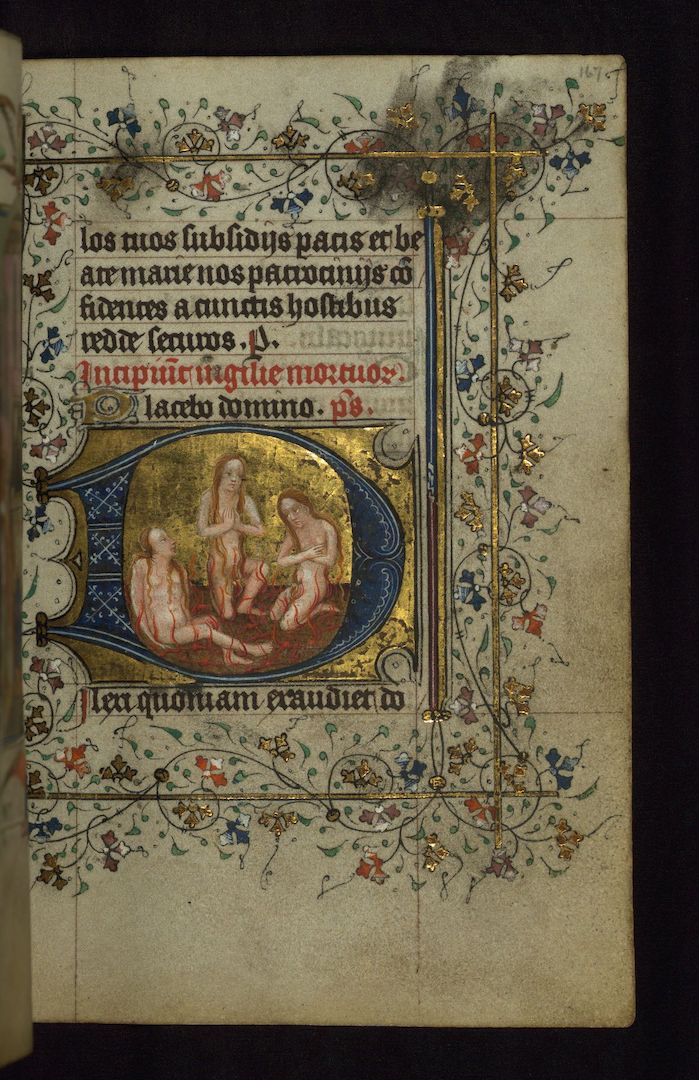 167
los tuos subsidijs pacis et be
ate marie nos patrocinijs cō
fidentes a cunctis hostibus
redde securos. P.
Incipiūt uigilie mortuoꝝ.
Placebo domino. p̄s.
Dilexi quoniam exaudiet do